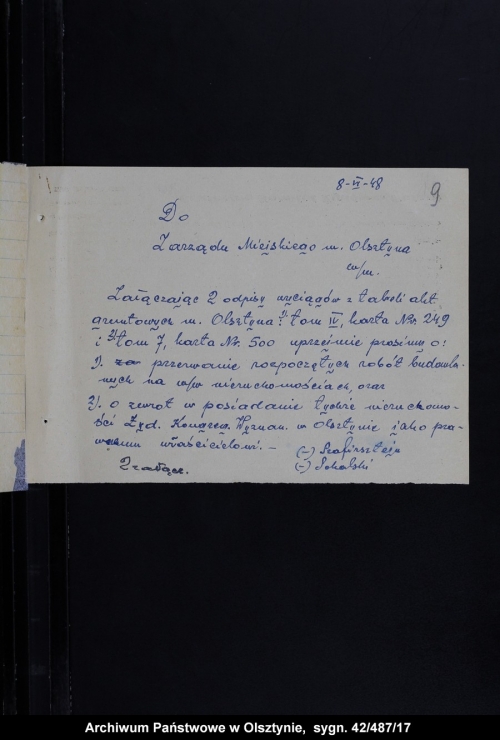 8-VI-48
9
Do
Zarządu Miejskiego m. Olsztyna
w/m.
Załączając 2 odpisy wyciągów z tabeli akt
gruntowych m. Olsztyna: 1) tom IV, karta Nr. 249
i 2) tom 7, karta Nr. 500 uprzejmie prosimy o:
1). za przerwanie rozpoczętych robót budowla-
nych na w/w nieruchomościach, oraz
2). o zwrot w posiadanie tychże nieruchomo-
ści Żyd. Kongreg. Wyznan. w Olsztynie jako pra-
wemu właścicielowi. -
(-) Szafirsztejn
2 załącz.
(-) Sokolski
Archiwum Państwowe w Olsztynie, sygn. 42/487/17